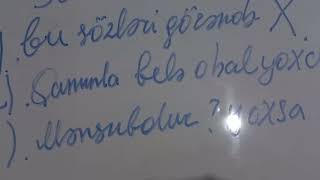 ). bu sözləri görəndə X.
). Səninlə belə olsa yox
). Mənsubdur? yoxsa